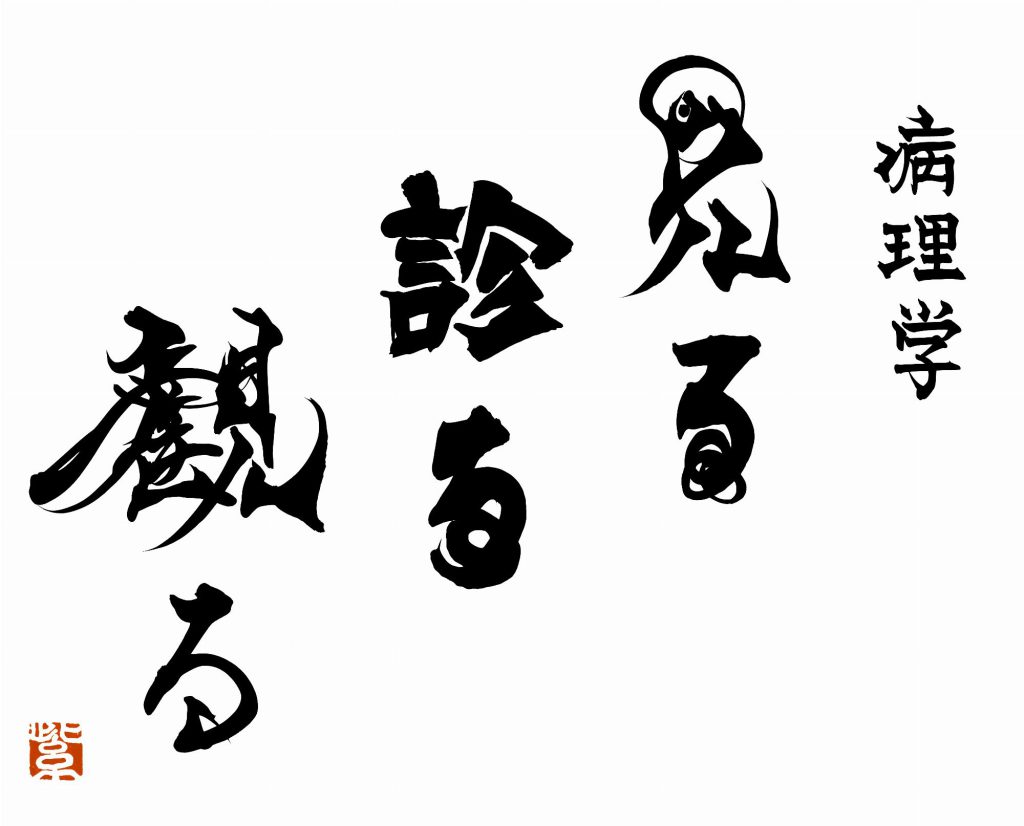 病理学
見る
診る
観る
紫